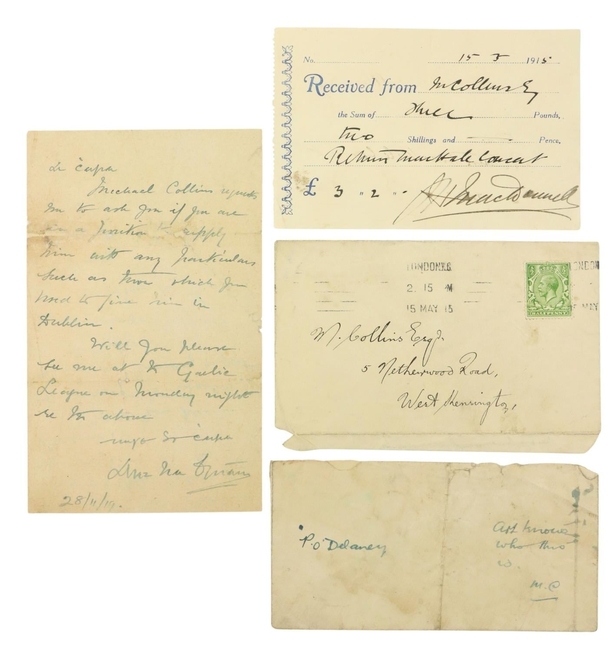 a Ċara
Michael Collins requests
me to ask you if you are
in a position to supply
him with any particulars
such as those which you
used to give him in
Dublin.
Will you please
see me at the Gaelic
League on Monday night
re the above
mise do ċara
28/11/19.
No. 15 3 1915
Received from M Collins Esq
the Sum of three Pounds,
two Shillings and — Pence,
Return Concert
£ 3 " 2 " -
MacDonnell
LONDON
2.15
15 MAY 15
HALFPENNY
M. Collins Esqr.
5 Netherwood Road,
West Kensington,
P. O'Delaney
Art knows
who this
is.
M.C